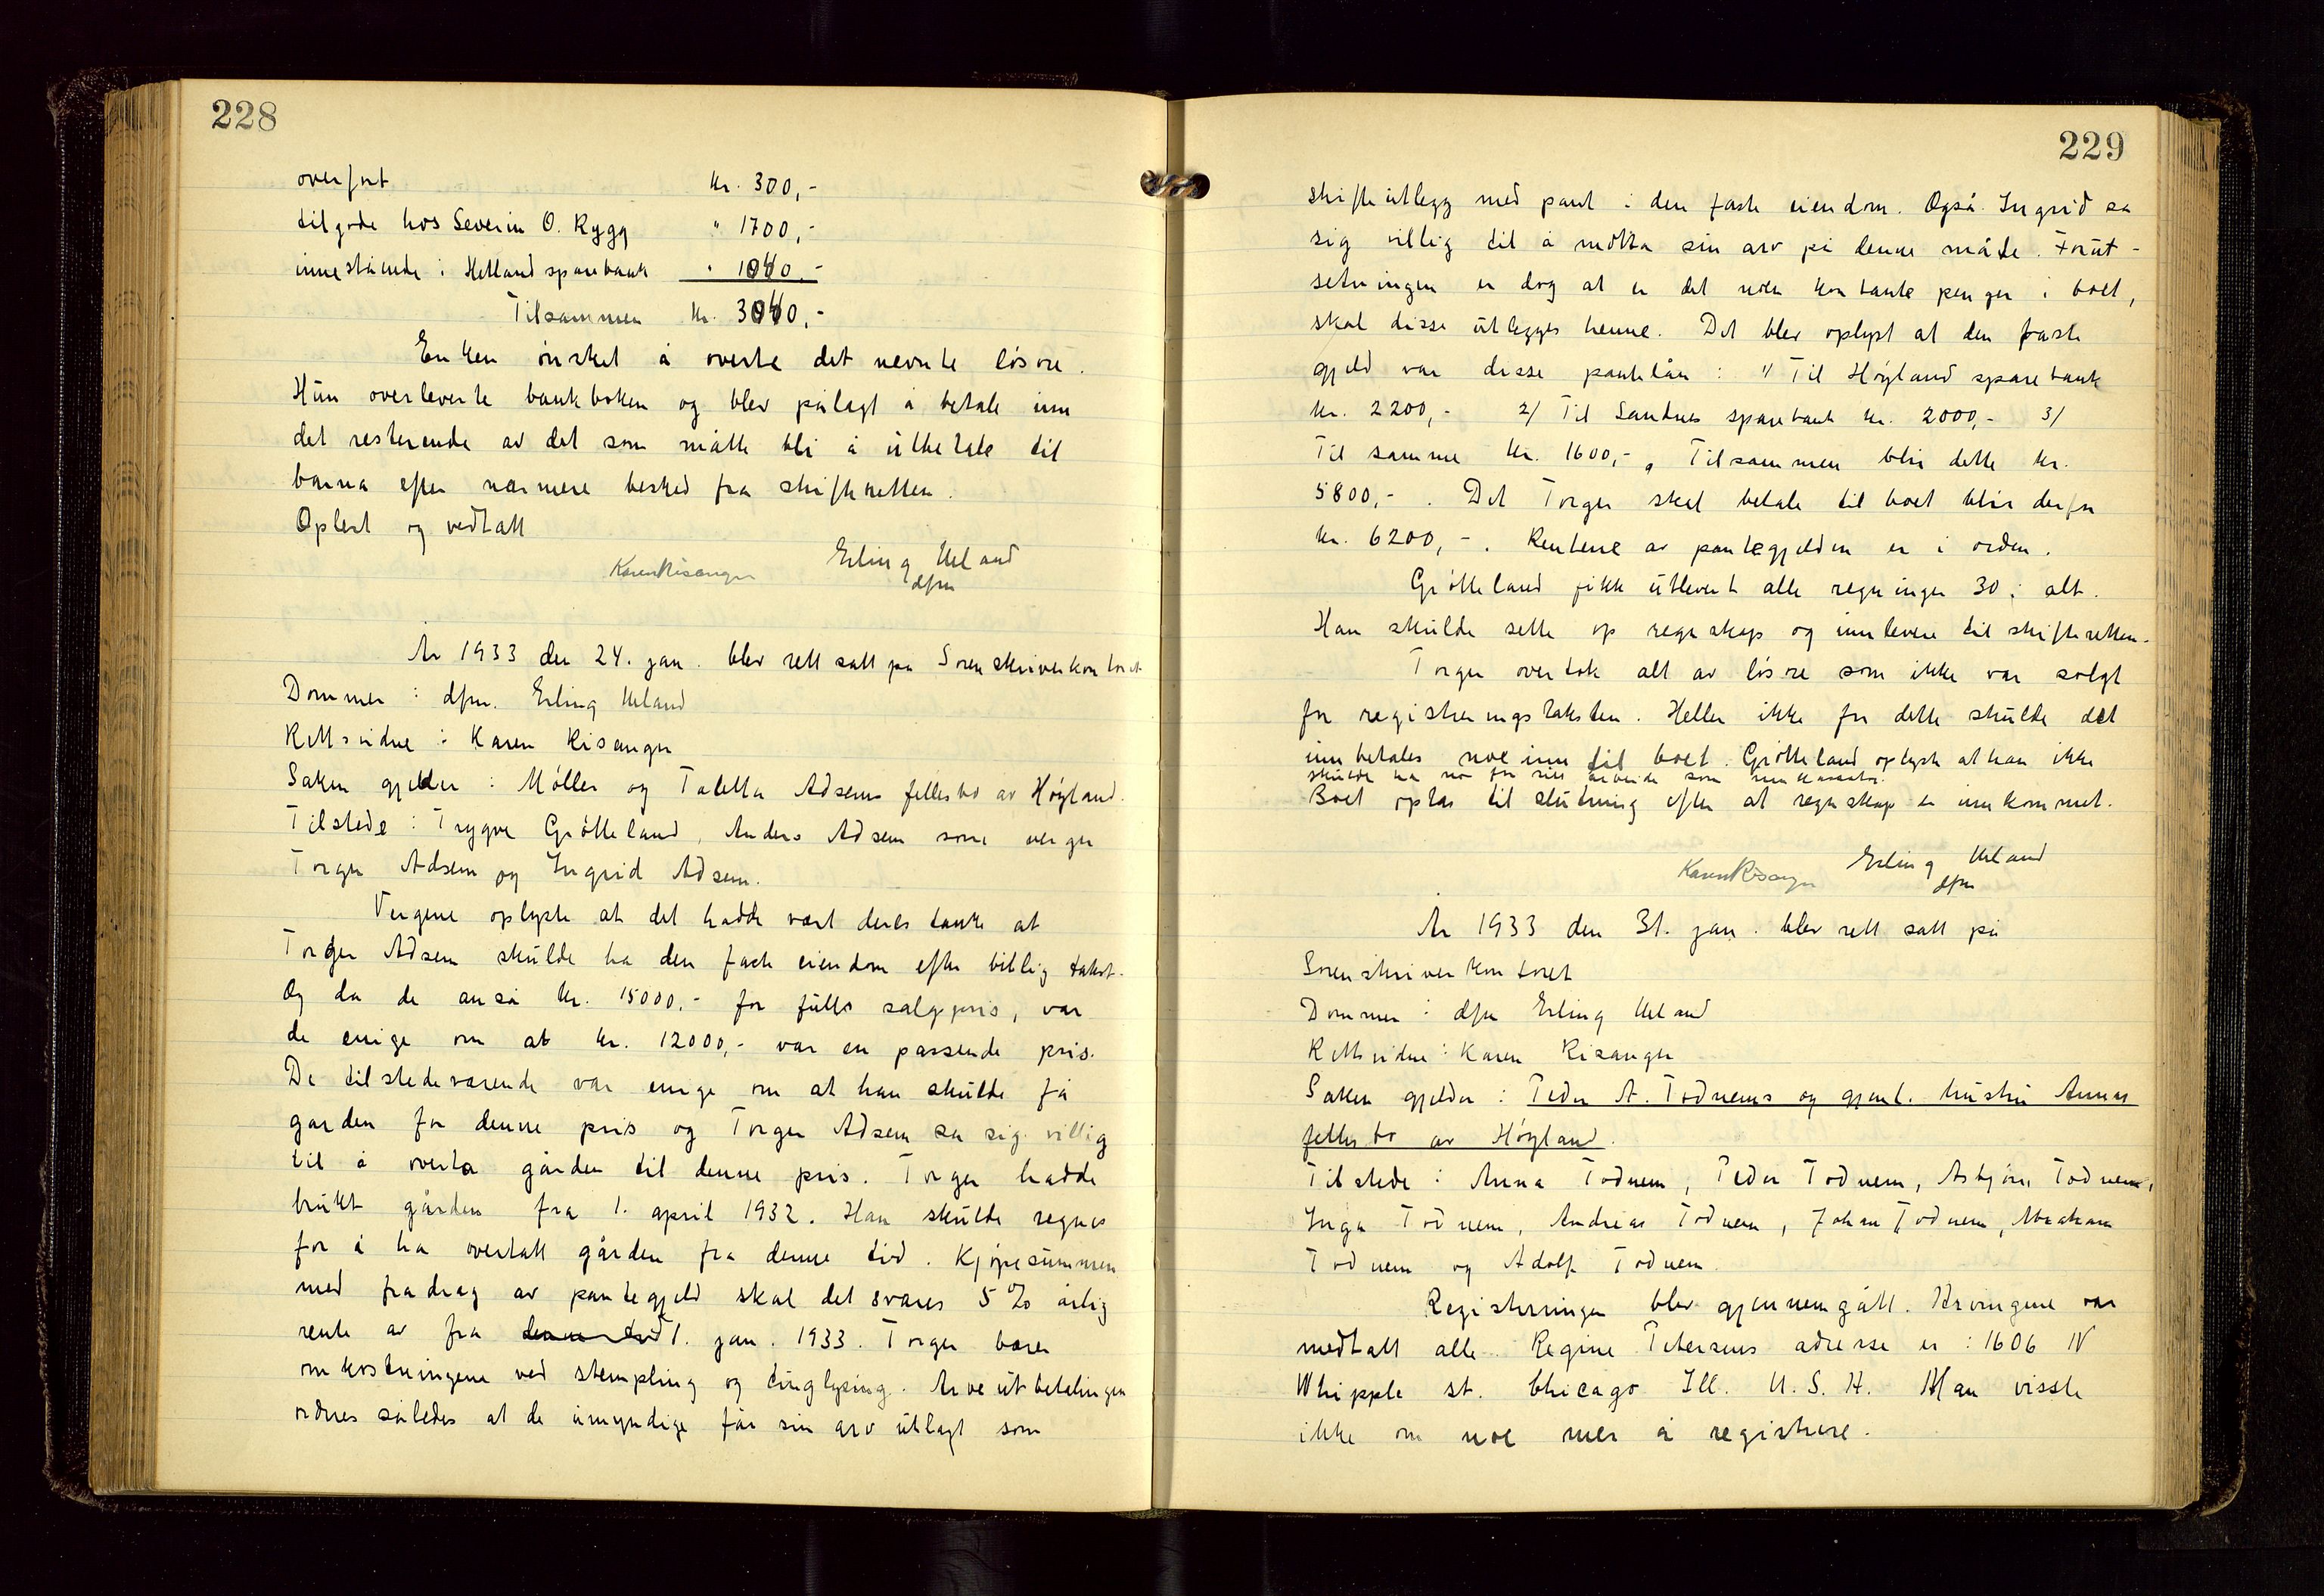 228
overført kr. 300,-
tilgode hos Severin O. Rygg " 1700,-
innestående i Hetland sparebank " 1040,-
Tilsammen kr. 3040,-
Enken ønsket å overta det nevnte løsøre.
Hun overleverte bankboken og blev pålagt å betale inn
det resterende av det som måtte bli å utbetale til
barna efter nærmere beskjed fra skifteretten.
Oplest og vedtatt
Karen Risanger Erling Ueland
dfm
År 1933 den 24. jan. blev rett satt på Sorenskriverkontoret
Dommer: dfm. Erling Ueland
Rettsvidne: Karen Risanger
Saken gjelder: Møller og Taletta Adsens fellesbo av Høyland.
Tilstede: Trygve Grøtteland, Anders Adsen som verger
Torger Adsen og Ingrid Adsen.
Vergene oplyste at det hadde vært deres tanke at
Torger Adsen skulde ha den faste eiendom efter billig takst.
Og da de anså kr. 15000.- for full salgspris, var
de enige om at kr. 12000,- var en passende pris.
De tilstedeværende var enige om at han skulde få
garden for denne pris og Torger Adsen sa sig villig
til å overta gården til denne pris. Torger hadde
brukt gården fra 1. april 1932. Han skulde regnes
for å ha overtatt gården fra denne tid. Kjøpesummen
med fradrag av pantegjeld skal det svares 5 % årlig
rente av fra denne tid 1. jan. 1933. Torger bærer
omkostningene ved stempling og tinglysing. Arveutbetalingen
ordnes således at de umyndige får sin arv utlagt som
229
skifteutlegg med pant i den faste eiendom. Også Ingrid sa
sig villig til å motta sin arv på denne måte. Forut-
setningen er dog at er det noen kontante penger i boet,
skal disse utlegges henne. Det blev oplyst at den faste
gjeld var disse pantelån: 1/ Til Høyland sparebank
kr. 2200,- 2/ Til Sandnes sparebank kr. 2000,- 3/
Til samme kr. 1600,-, Tilsammen blir dette kr.
5800,-. Det Torger skal betale til boet blir derfor
kr. 6200,-. Rentene av pantegjelden er i orden.
Grøtteland fikk utlevert alle regninger 30 i alt.
Han skulde sette op regnskap og innlevere til skifteretten.
Torger overtok alt av løsøre som ikke var solgt
for registreringstaksten. Heller ikke for dette skulde det
innbetales noe inn til boet. Grøtteland oplyste at han ikke
skulde ha noe for sitt arbeide som innkassator.
Boet optas til slutning efter at regnskap er innkommet.
Karen Risanger Erling Ueland
dfm
År 1933 den 31. jan. blev rett satt på
Sorenskriverkontoret
Dommer: dfm Erling Ueland
Rettsvidne: Karen Risanger
Saken gjelder: Peder A. Todnems og gjenl. hustru Annas
fellesbo av Høyland.
Tilstede: Anna Todnem, Peder Todnem, Asbjørn Todnem,
Inga Todnem, Andreas Todnem, Johan Todnem, Abraham
Todnem og Adolf Todnem.
Registreringen blev gjennemgått. Arvingene var
medtatt alle. Regine Petersens adresse er: 1606 N
Whipple st. Chicago Ill. U.S.A. Man visste
ikke om noe mer å registrere.